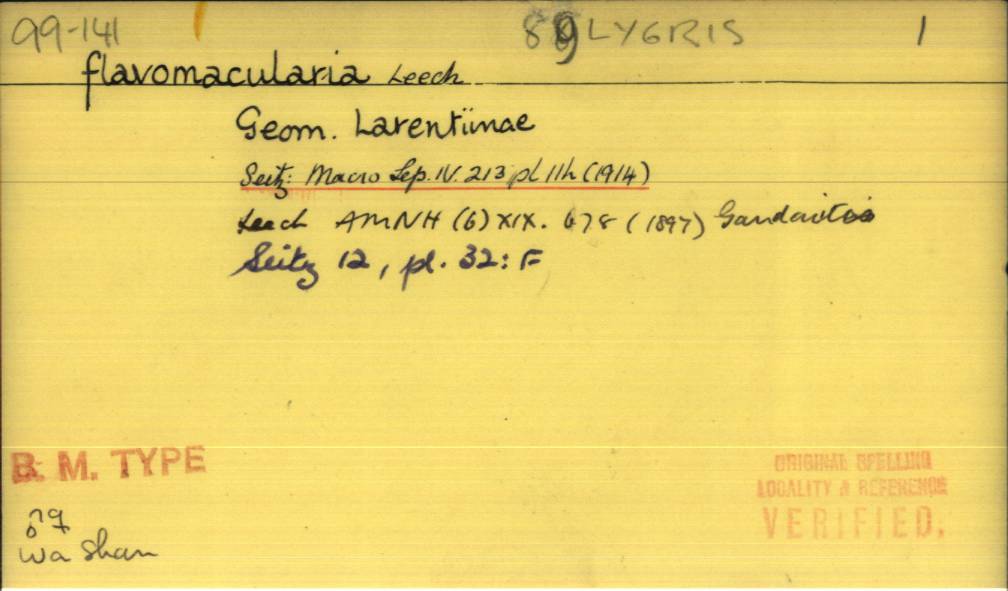 99-141 89 LYGRIS 1
flavomacularia Leech
Geom. Larentiinae
Seitz: Macro Lep. IV. 213 pl 11h (1914)
Leech AMNH (6) XIX. 678 (1897)
Seitz 12, pl. 32: F
B. M. TYPE
♂♀
Wa Shan
ORIGINAL SPELLING
LOCALITY & REFERENCE
VERIFIED.